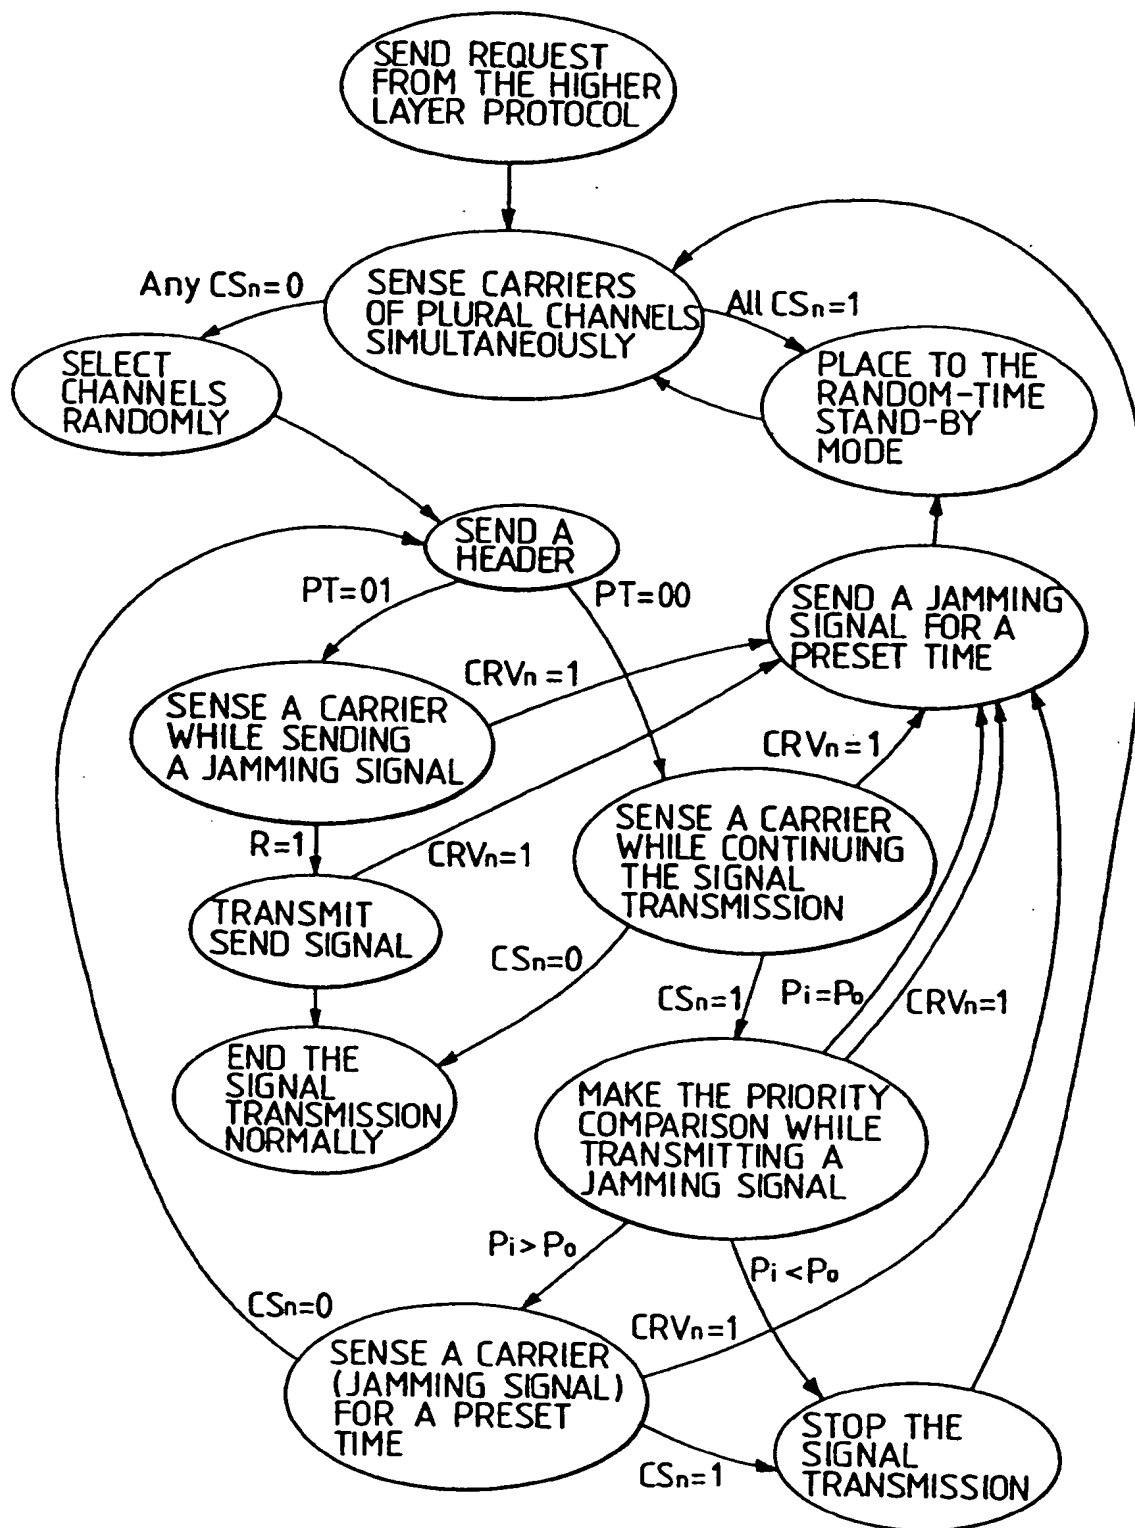 SEND REQUEST
FROM THE HIGHER
LAYER PROTOCOL
Any CSn=0
SENSE CARRIERS
OF PLURAL CHANNELS
SIMULTANEOUSLY
All CSn=1
SELECT
CHANNELS
RANDOMLY
PLACE TO THE
RANDOM-TIME
STAND-BY
MODE
SEND A
HEADER
PT=01
PT=00
SEND A JAMMING
SIGNAL FOR A
PRESET TIME
CRVn=1
SENSE A CARRIER
WHILE SENDING
A JAMMING SIGNAL
CRVn=1
R=1
CRVn=1
SENSE A CARRIER
WHILE CONTINUING
THE SIGNAL
TRANSMISSION
TRANSMIT
SEND SIGNAL
CSn=0
CSn=1
Pi=Po
CRVn=1
END THE
SIGNAL
TRANSMISSION
NORMALLY
MAKE THE PRIORITY
COMPARISON WHILE
TRANSMITTING A
JAMMING SIGNAL
Pi>Po
Pi<Po
CSn=0
CRVn=1
SENSE A CARRIER
(JAMMING SIGNAL)
FOR A PRESET
TIME
CSn=1
STOP THE
SIGNAL
TRANSMISSION